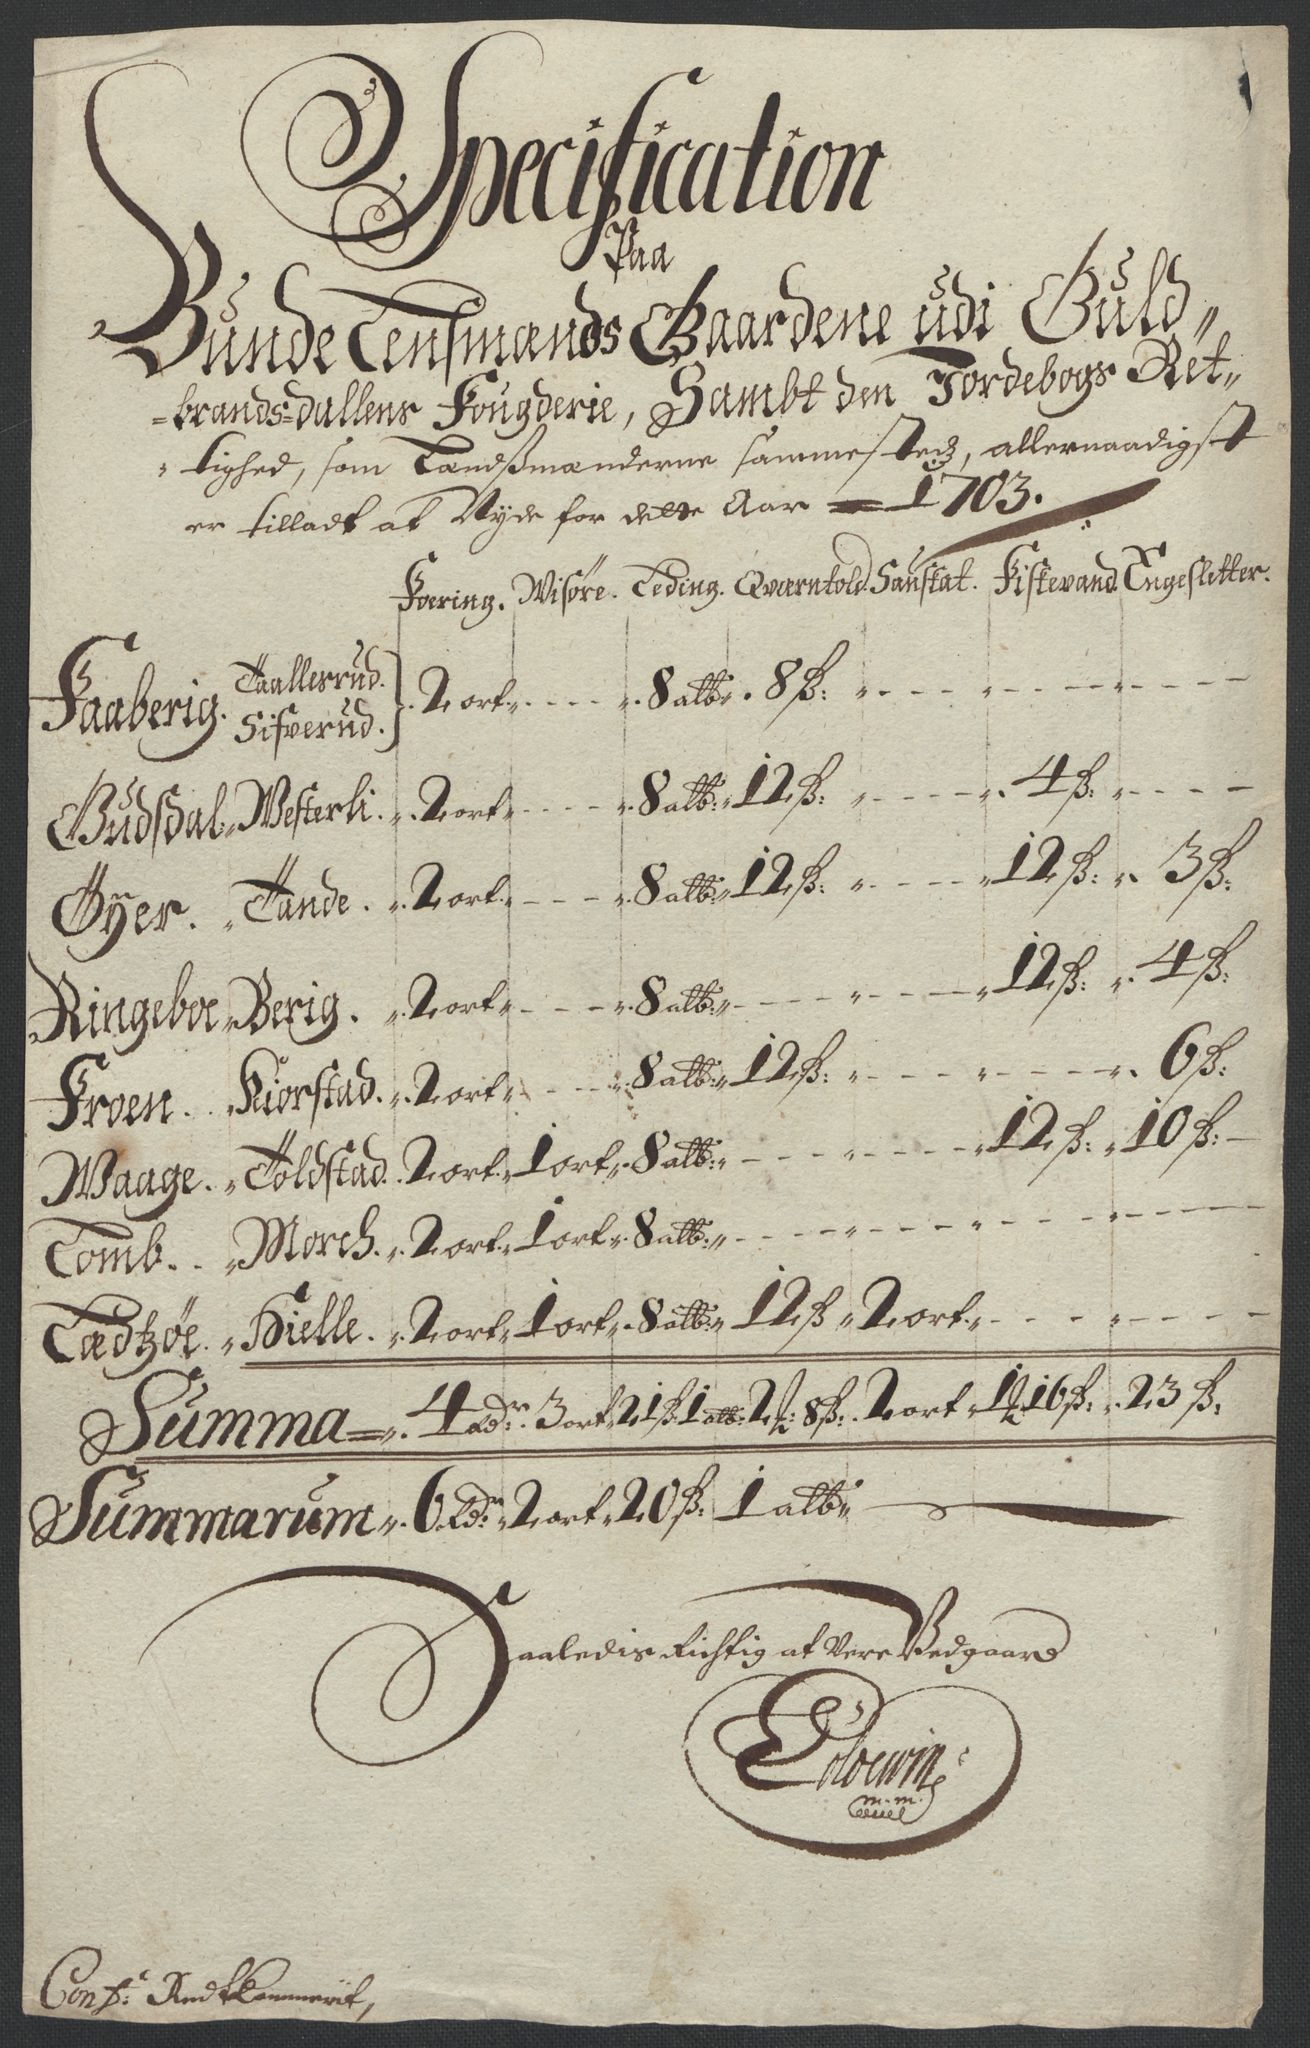 Specification
Paa
Bunde Lensmands Gaardene udi Guld„
=brands=dallens Fougderie, Sambt den Jordebogs Ret„
„tighed, som Landsmænderne sammesteds, allernaadigst
er tilladt at Nyde for dette Aar = 1703.
Foering. Wisøre. Leding. Qværntold. Saustat. Fiskevand. Engesletter.
Faaberig. Taallerud. Sifverud. } 2 ort „ 8 alb „ 8 ß:
Gudsdal „ Westerli. 2 ort „ 8 alb: 12 ß: 4 ß:
Øyer. „ Tande. 2 ort „ 8 alb: 12 ß: 12 ß: 3 ß:
Ringeboe „ Berig. 2 ort „ 8 alb: 12 ß: 4 ß:
Froen. „ Kiorstad. 2 ort „ 8 alb: 12 ß: 6 ß:
Waage. „ Toldstad. 2 ort „ 1 ort „ 8 alb: 12 ß: 10 ß:
Lomb. „ Morch. 2 ort „ 1 ort „ 8 alb:
Lædtzøe. „ Hielle. 2 ort „ 1 ort „ 8 alb: 12 ß „ 2 ort
Summa = 4 rdr: 3 ort 21 ß 1 alb: 2 ƒ: 8 ß: 2 ort 1 ƒ 16 ß: 23 ß:
Summarum „ 6 rdr: 2 ort 20 ß: 1 alb „
Saaledis Rigtig at Vere Bedgaard
m.m.
Conf: Rendtkammerit,